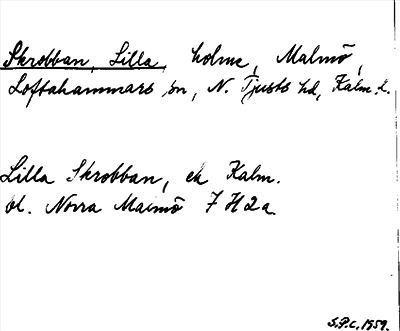 Skrobban, Lilla, holme, Malmö,
Loftahammars sn, N. Tjusts hd, Kalm. l.
Lilla Skrobban, ek Kalm.
bl. Norra Malmö 7 H 2 a.
S.P.C. 1959.